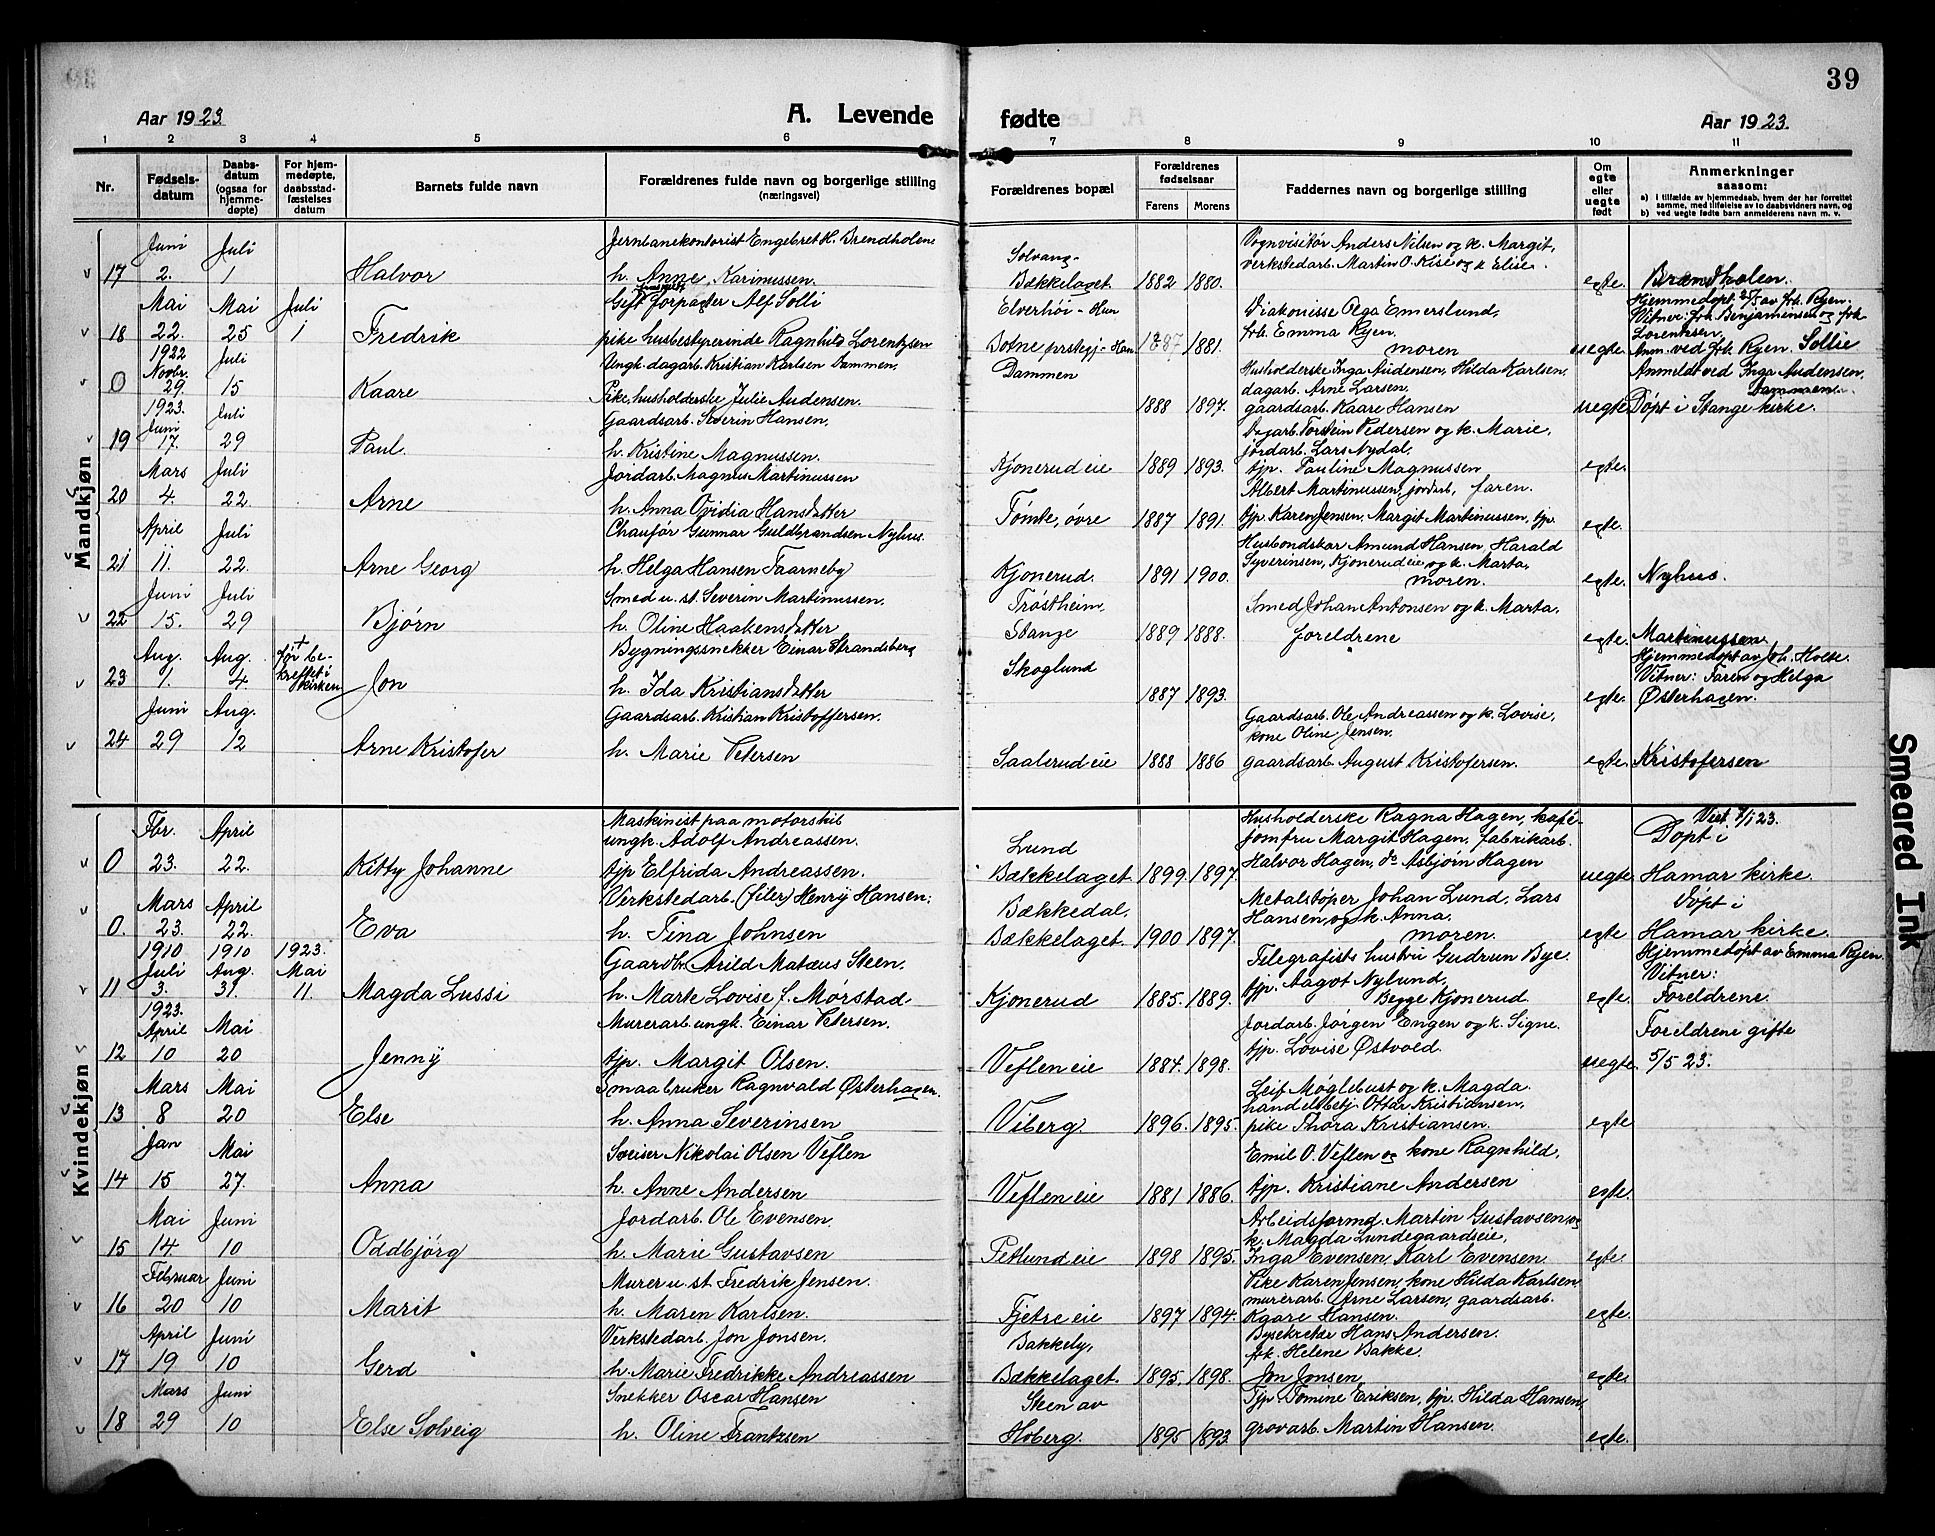 39
Aar 1923.
A. Levende
fødte
Aar 1923.
1 2 3 4 5 6 7 8 9 10 11
Nr.
Fødsels-
datum
Daabs-
datum
(ogsaa for
hjemme-
døpte)
For hjem-
medøpte,
daabsstad-
fæstelses
datum
Barnets fulde navn
Forældrenes fulde navn og borgerlige stilling
(næringsvei)
Forældrenes bopæl
Forældrenes
fødselsaar
Farens
Morens
Faddernes navn og borgerlige stilling
Om
egte
eller
uegte
født
Anmerkninger
saasom:
a) i tilfælde av hjemmedaab, hvem der har forrettet
samme, med tilføielse av to daabsvidners navn, og
b) ved uegte fødte barn anmelderens navn m. v.
Mandkjøn
Juni Juli Jernbanekontorist Engebret H. Brendholen Solvang- Vognvisitør Anders Nilsen og k. Margit,
verkstedarb. Martin O. Kise og k Elise.
17 2. 1 Halvor h. Anne Karimussen. Bækkelaget 1882 1880. egte. Brændholen.
Mai Mai Juli Gift forpagter Alf Solli Elverhöi - Hun Diakonisse Olga Emerslund, Hjemmedöpt 25/5 av frk. Ryen.
Vitner: frk. Benjaminsen og frk
18 22. 25 1 Fredrik pike husbestyrerinde Ragnhild Lorentzen Botne prstegj - Han 1887 1881. frk. Emma Ryen. Lorentzen.
moren uegte Anm. ved frk. Ryen. Sollie
1922 Novbr. Juli Ungk. dagarb. Kristian Karlsen Dammen. Dammen Husholderske Inga Audensen, Hilda Karlsen, Anmeldt ved Inga Audensen,
0 29. 15 Kaare Pike, husholderske Julie Audensen. dagarb. Arne Larsen. Dammen.
1888 1897. gaardsarb. Kaare Hansen uegte Döpt i Stange kirke.
1923. Juni Juli Gaardsarb. Severin Hansen. Dagarb. Torstein Pedersen og k. Marie,
19 17. 29 Paul. h. Kristine Magnussen. jordarb. Lars Nydal,
Kjonerudeie 1889 1893. tjp. Pauline Magnussen egte.
Mars Juli Jordarb. Magnus Martinussen Albert Martinussen, jordarb, faren.
20 4. 22 Arne h. Anna Ovidia Hansdatter Tömte, övre 1887 1891. tjp. Karen Jensen, Margit Martinussen, tjp. egte.
April Juli Chauför Gunnar Guldbrandsen Nyhus. Husbondskar Amund Hansen, Harald
21 11. 22. Arne Georg h. Helga Hansen Taarneby Kjonerud. 1891 1900. Syverinsen, Kjonerudeie og k. Marta,
moren. egte. Nyhus.
Juni Juli Smed u. st. Severin Martinussen. Tröstheim, Smed Johan Antonsen og k. Marta.
22 15. 29 Bjørn h. Oline Haakensdatter Stange 1889 1888. foreldrene egte. Martinussen
Aug. Aug. + før be-
kreftet i
kirken Bygningssnekker Einar Strandsberg Skoglund Hjemmedöpt av Joh. Holte.
23 1. 4. Jon h. Ida Kristiansdatter Vitner: Faren og Helga
1887 1893. egte. Østerhagen.
Juni Aug. Gaardsarb. Kristian Kristoffersen. Gaardsarb. Ole Andreassen og k. Lovise,
kone Oline Jensen.
24 29 12 Arne Kristofer h. Marie Petersen Saalerudeie 1888 1886 gaardsarb. August Kristofersen. egte. Kristofersen
Kvindekjøn
Fbr. April Maskinist paa motorskib Husholderske Ragna Hagen, kafé- Vist. 7/1 23.
ungk. Adolf Andreassen. Lund jomfru Margit Hagen, fabrikarb. Döpt i
0 23. 22. Kitty Johanne tjp Elfrida Andreassen. Bækkelaget 1899. 1897. Halvor Hagen, do Asbjörn Hagen uegte. Hamar kirke.
Mars April Verkstedarb. (filer) Henry Hansen. Bækkedal, Metalstöper Johan Lund, Lars Döpt i
0. 23. 22. Eva h. Tina Johnsen Bækkelaget. 1900 1897. Hansen og k. Anna.
moren. egte Hamar kirke.
1910 1910 1923.
Juli Aug. Mai Gaardbr. Arild Matæus Steen. Telegrafists hustru Gudrun Bye. Hjemmedöpt av Emma Ryen.
11 3. 31. 11. Magda Lussi h. Marte Lovise f. Mørstad Kjonerud 1885. 1889. tjp. Aagot Nylund, Vitner:
Begge Kjonerud. egte. Foreldrene.
1923. April Mai Murerarb. ungk. Einar Petersen. Jordarb. Jörgen Engen og k. Signe. Foreldrene gifte
12 10 20 Jenny tjp. Margit Olsen. Vefleneie 1884. 1898. tjp. Lovise Østvold. uegte. 5/5 23.
Mars Mai Smaabruker Ragnvald Østerhagen. Leif Møglebust og k. Magda.
13 8 20 Else h. Anna Severinsen Viberg. 1896. 1895. handelsbetj. Ottar Kristiansen,
pike Thora Kristiansen. egte
Jan Mai Sveiser Nikolai Olsen Veflen Emil O. Veflen og kone Ragnhild.
14 15 27. Anna h. Anne Andersen Vefleneie 1881 1886. tjp. Kristiane Andersen egte.
Mai Juni Jordarb. Ole Evensen. Arbeidsformd. Martin Gustavsen og
k. Magda Lundegaardseie,
15 14 10 Oddbjörg h. Marie Gustavsen Petlundeie 1898 1895. Inga Evensen, Karl Evensen. egte.
Februar Juni Murer u. st. Fredrik Jensen. Pike Karen Jensen, kone Hilda Karlsen
murerarb. Arne Larsen, gaardsarb.
16 20 10 Marit h. Maren Karlsen. Fjetre eie 1897 1894. Kaare Hansen. egte.
April Juni Verkstedarb. Jon Jonsen. Bakkely, Bysekretær Hans Andersen.
frk. Helene Bakke.
17 19 10 Gerd h. Marie Fredrikke Andreassen Bækkelaget. 1895. 1898. Jon Jonsen. egte.
Mars Juni Snekker Oscar Hansen Steen av Tjp Tomine Eriksen, tjp. Hilda Hansen,
18 29 10 Else Solveig h. Oline Frantzsen Hoberg. 1895 1893. grovarb. Martin Hansen. egte.
Smeared Ink